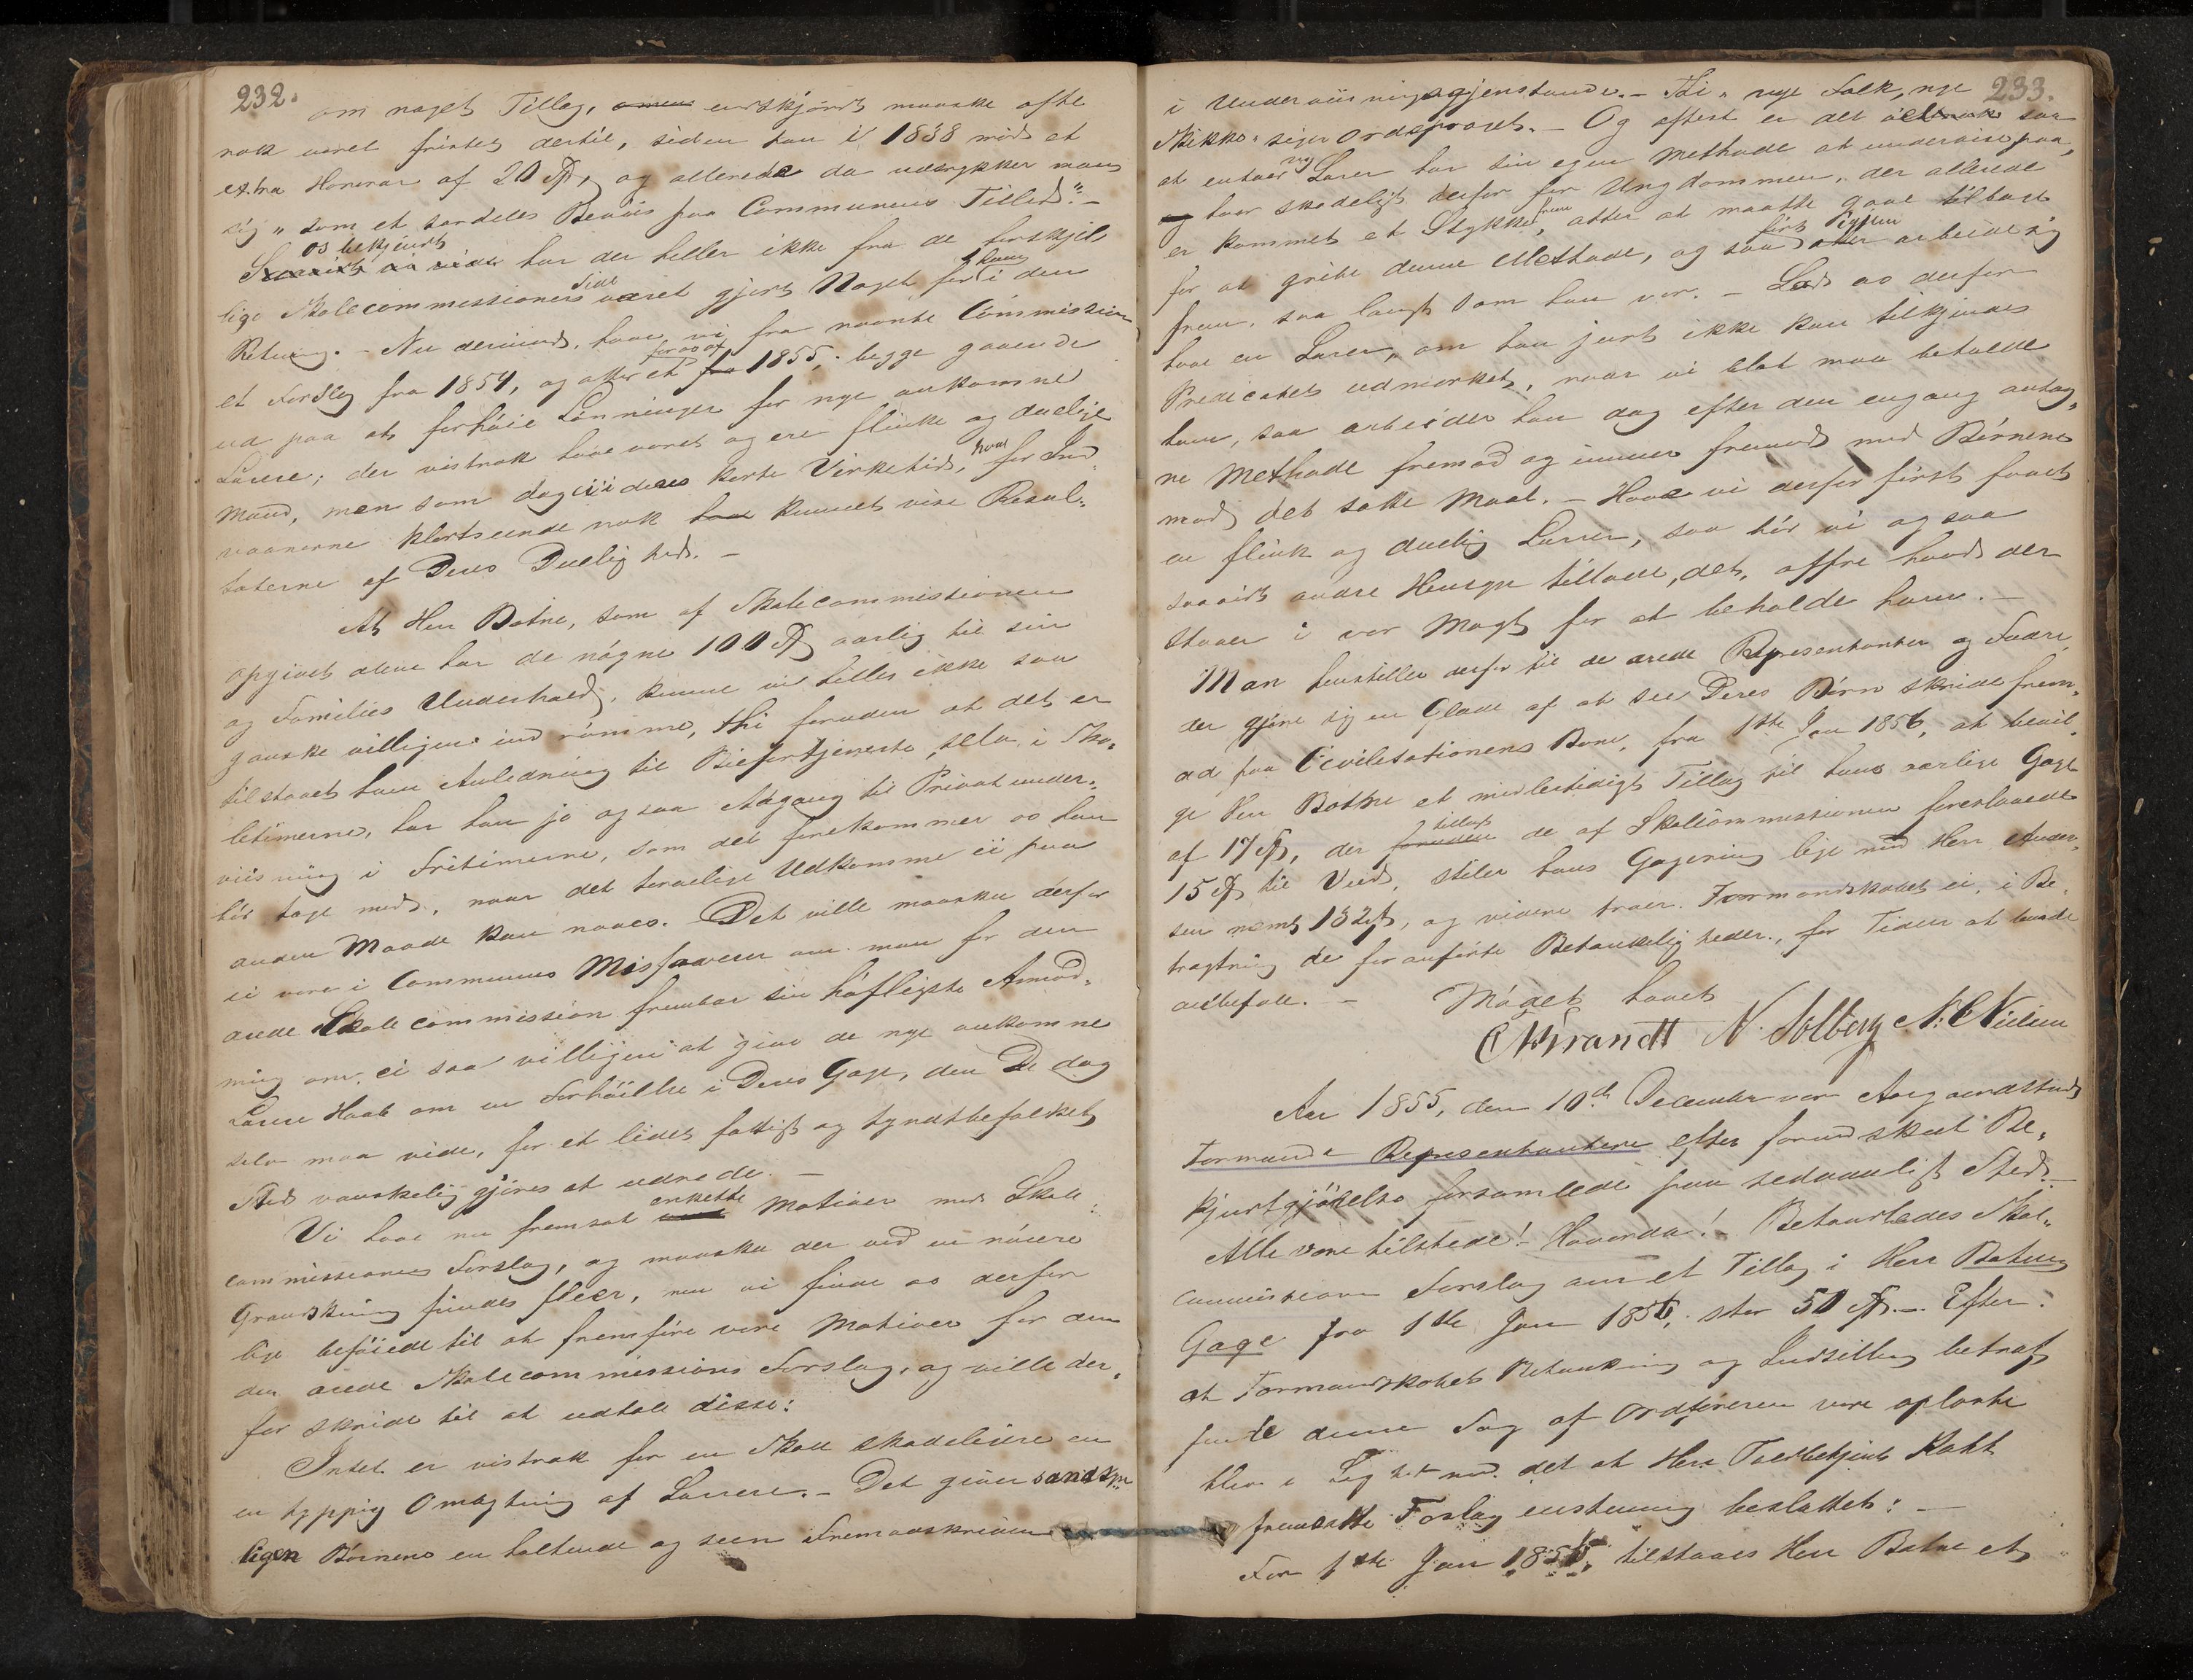 232.
om noget Tillæg, endskjøndt maaske ofte
nok været fristet dertil, siden han i 1838 nød et
extra Honorar af 20 Spd, og allerede da udtrykker man
sig "som et særdeles Beviis paa Communens Tilfreds". -
os bekjendt
har der heller ikke fra de forskjel-
lige Skolecommissioners Side været gjort Noget for ham i den
Retning. - Nu derimod, have vi fra nævnte Commission
et Forslag fra 1854, og atter et for 1855, begge gaaende
ud paa at forhøie Lønninger for nye ankomne
Lærere; der vistnok have været og ere flinke og duelige
Mænd, men som dog ei i deres korte Virketid, hvor for Ind-
vaanerne klartseende nok kunnet vise Resul-
taterne af Deres Duelighed. -
At Herr Bøtne, som af Skolecommissionen
opgivet alene har de nøgne 100 Spd aarlig til sin
og Families Underhold, kunne vi heller ikke saa
ganske villigen indrømme, thi foruden at det er
tilstaaet ham Anledning til Bifortjeneste selv i Sko-
letimerne, har han jo ogsaa Adgang til Privatunder-
viisning i Fritimerne, som det forekommer os han
bør tage med, naar det tarvelige Udkomme ei paa
anden Maade kan naaes. Det ville maaske derfor
ei være i Communens Misfaveur om man for den
ærede Skolecommission frembar sin høfligste Anmod-
ning om, ei saa villigen at give de nye ankomne
Lærere Haab om en Forhøielse i Deres Gage, den De dog
selv maa vide, for et lidet fattigt og tyndtbefolket
Sted vanskelig gjøres at udrede. -
Vi have nu fremsat enkelte Motiver mod Skole-
commissionens Forslag, og maaske der ved en nøiere
Granskning findes fleer, men vi finde os derfor
lige beføiede til at fremføre vore Motiver for den
den ærede Skolecommissions Forslag, og ville der-
for skride til at udtale disse:
Intet er vistnok for en Skole skadeligere en
en hyppig Omvexling af Lærere. - Det giver sandsyn-
ligen Børnene en haltende og seen Fremadskriden
233.
i Underviisningsgjenstande. - Thi "nye Folk, nye
Skikke" siger Ordsproget. - Og oftest er det saa
at enhver ny Lærer har sin egen Methode at undervise paa,
hvor skadeligt derfor for Ungdommen, der allerede
er kommet et Stykke frem, atter at maatte gaae tilbage
for at gribe denne Methode, og saa først igjen arbeide sig
frem, saa langt som han var. - Lad os derfor
have en Lærer, om han just ikke kan tilkjendes
Predicatet udmærket, naar vi blot maa beholde
ham, saa arbeider han dog efter den engang antag-
ne Methode fremad og immer fremad med Børnene
mod det satte Maal. - Have vi derfor først faaet
en flink og duelig Lærer, saa bør vi ogsaa
saavidt andre Hensyn tillade det, offre hvad der
staaer i vor Magt for at beholde ham. -
Man henstiller derfor til de ærede Representanter og Fædre,
der gjøre sig en Glæde af at see Deres Børn skride frem-
ad paa Civilisationens Bane, fra 1ste Jan 1856, at bevil-
ge Herr Bøtne et midlertidigt Tillæg til hans aarlige Gage
af 17 Spd, der tillagt de af Skolecommissionen foreslaaede
15 Spd til Veed, stiller hans Gagering lige med Herr Ander-
sens nemlig 132 Spd, og videre troer Formandskabet ei, i Be-
tragtning de foranførte Betænkeligheder, for Tiden at burde
anbefale. - Meget lovet
C Brandt N. Solberg N: C Nielsen
Aar 1855, den 10de December var Aasgaardstrands
Formænd & Representantere efter forud skeet Be-
kjendtgjørelse forsamlede paa sædvanligt Sted. -
Alle vare tilstede! Hvorda! Behandledes Skole-
commissionens Forslag om et Tillæg i Herr Bøtnes
Gage fra 1ste Jan 1856, stor 50 Spd. - Efter
at Formandskabets Betænkning og Indstilling betræf-
fende denne Sag af Ordføreren vare oplæste
blev i Lighed med det af Herr Toldbetjent Koht
fremsatte Forslag enstemmig besluttet: -
Fra 1ste Jan 1856, tilstaaes Herr Bøtne et